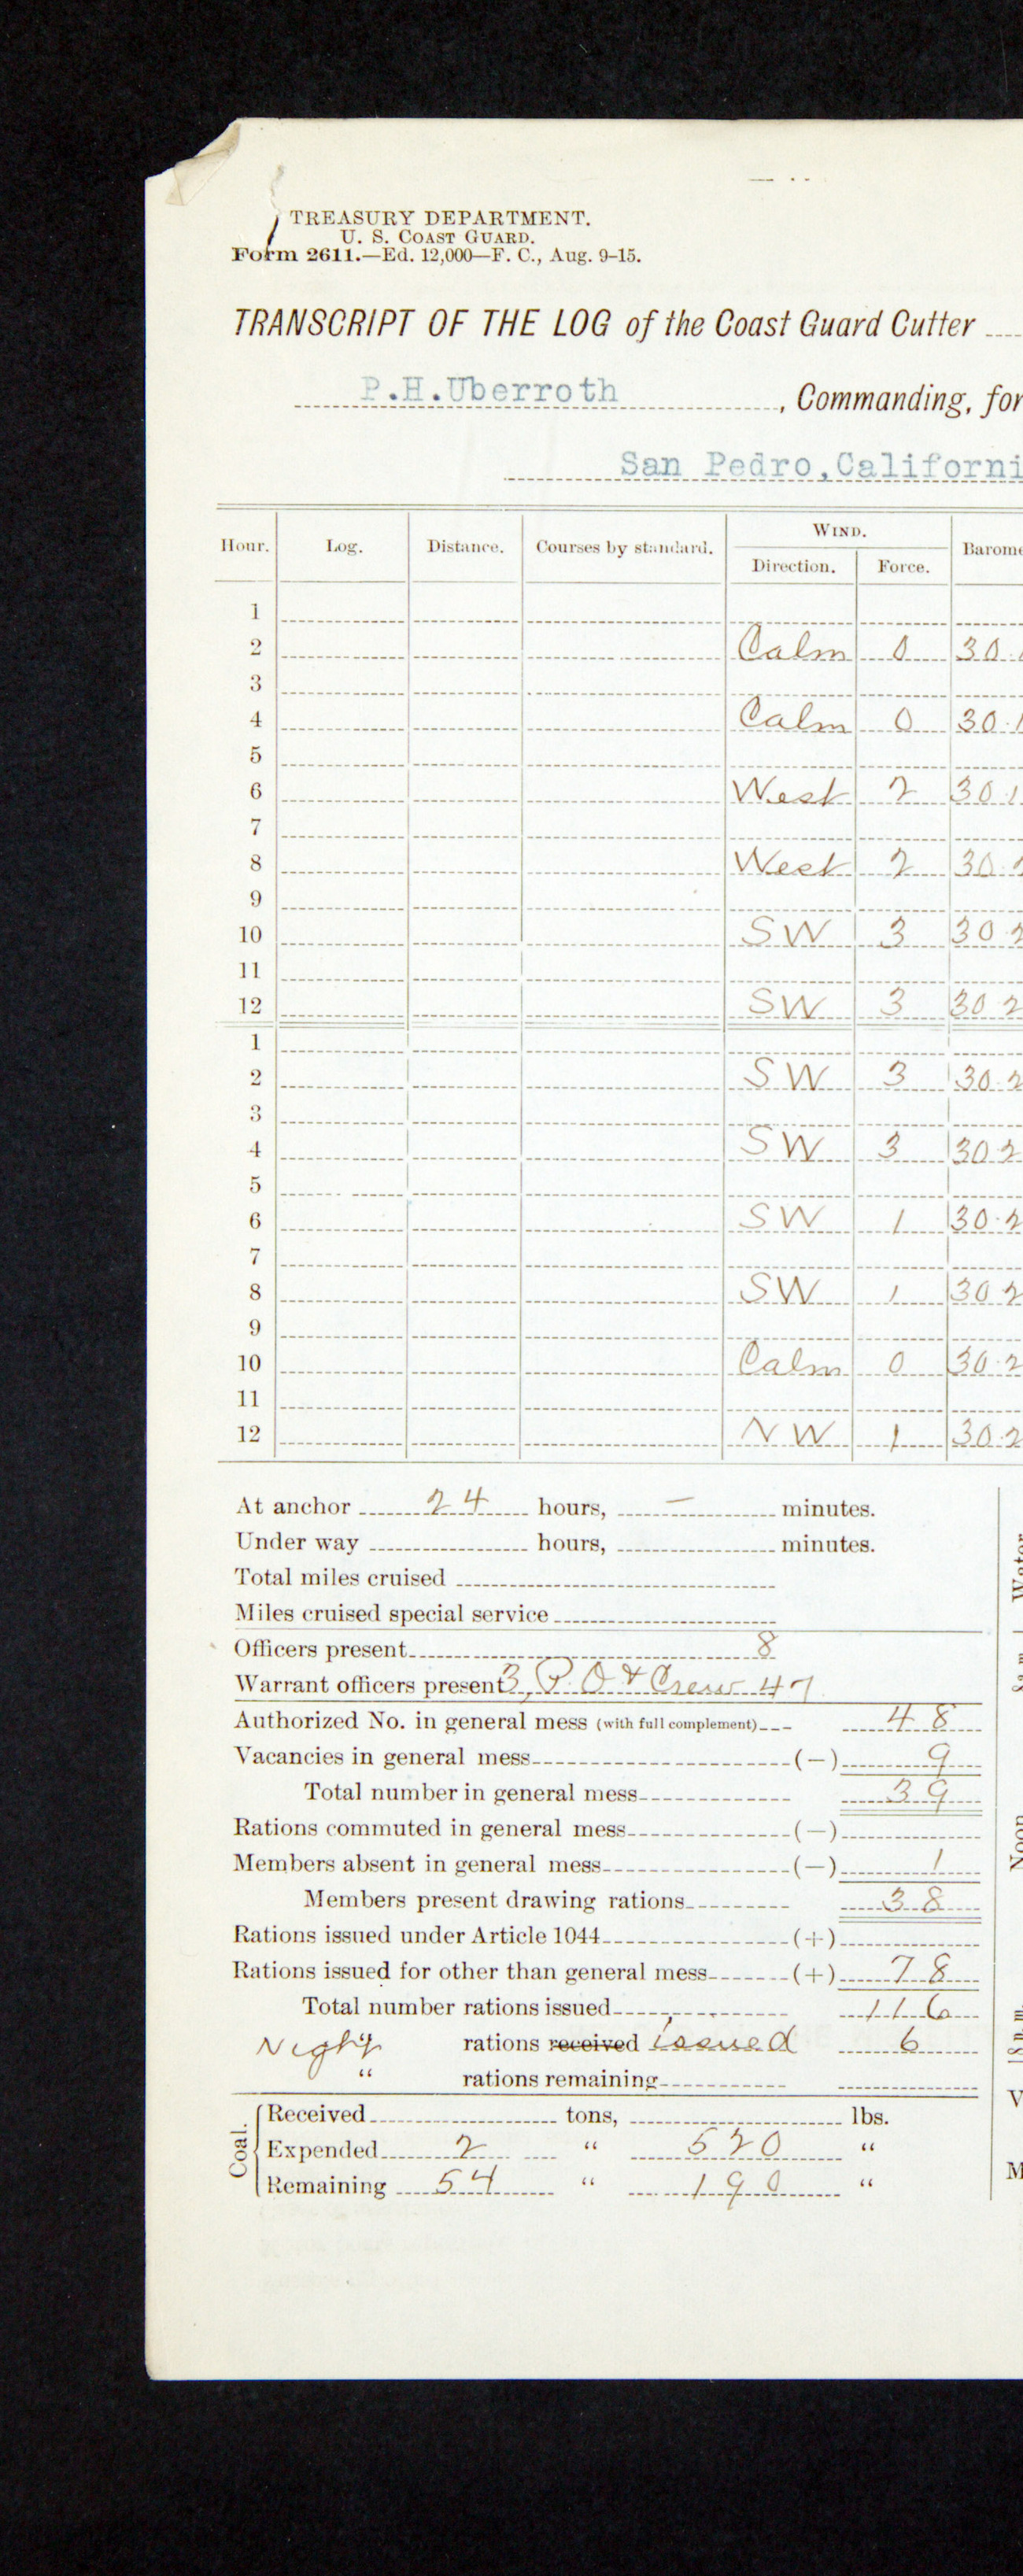 TREASURY DEPARTMENT.
U. S. COAST GUARD.
Form 2611.—Ed. 12,000—F. C., Aug. 9-15.
TRANSCRIPT OF THE LOG of the Coast Guard Cutter
P.H.Uberroth, Commanding, for
San Pedro,Californi
WIND.
Hour. Log. Distance. Courses by standard. Direction. Force. Barome
1
2 Calm 0 30.1
3
4 Calm 0 30.1
5
6 West 2 30 1
7
8 West 2 30.2
9
10 SW 3 30 2
11
12 SW 3 30 2
1
2 SW 3 30.2
3
4 SW 3 30 2
5
6 SW 1 30.2
7
8 SW 1 30 2
9
10 Calm 0 30.2
11
12 NW 1 30.2
At anchor 24 hours, — minutes.
Under way hours, minutes.
Total miles cruised
Miles cruised special service
Officers present 8
Warrant officers present 3, P.O & Crew 47
Authorized No. in general mess (with full complement) 48
Vacancies in general mess (—) 9
Total number in general mess 39
Rations commuted in general mess (—)
Members absent in general mess (—) 1
Members present drawing rations 38
Rations issued under Article 1044 (+)
Rations issued for other than general mess (+) 78
Total number rations issued 116
Night rations received issued 6
" rations remaining
Coal.
Received tons, lbs.
Expended 2 " 520 "
Remaining 54 " 190 "
Water
8 a m
Noon
8 p m
V
M